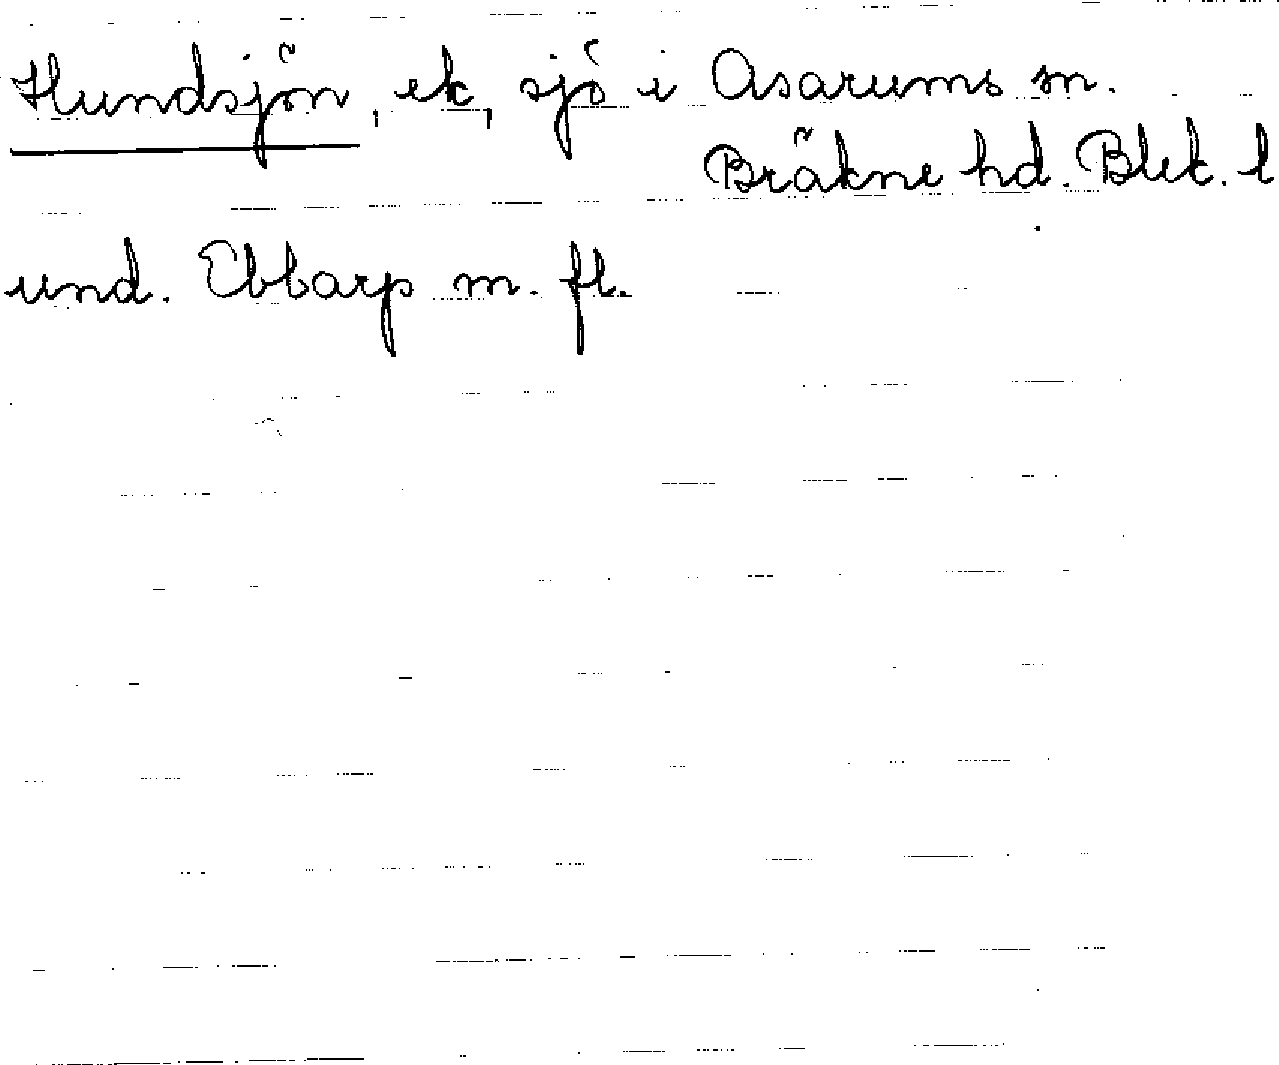 Hundsjön, ek, sjö i Asarums sn.
Bräkne hd. Blek. l
und. Ebbarp m. fl.